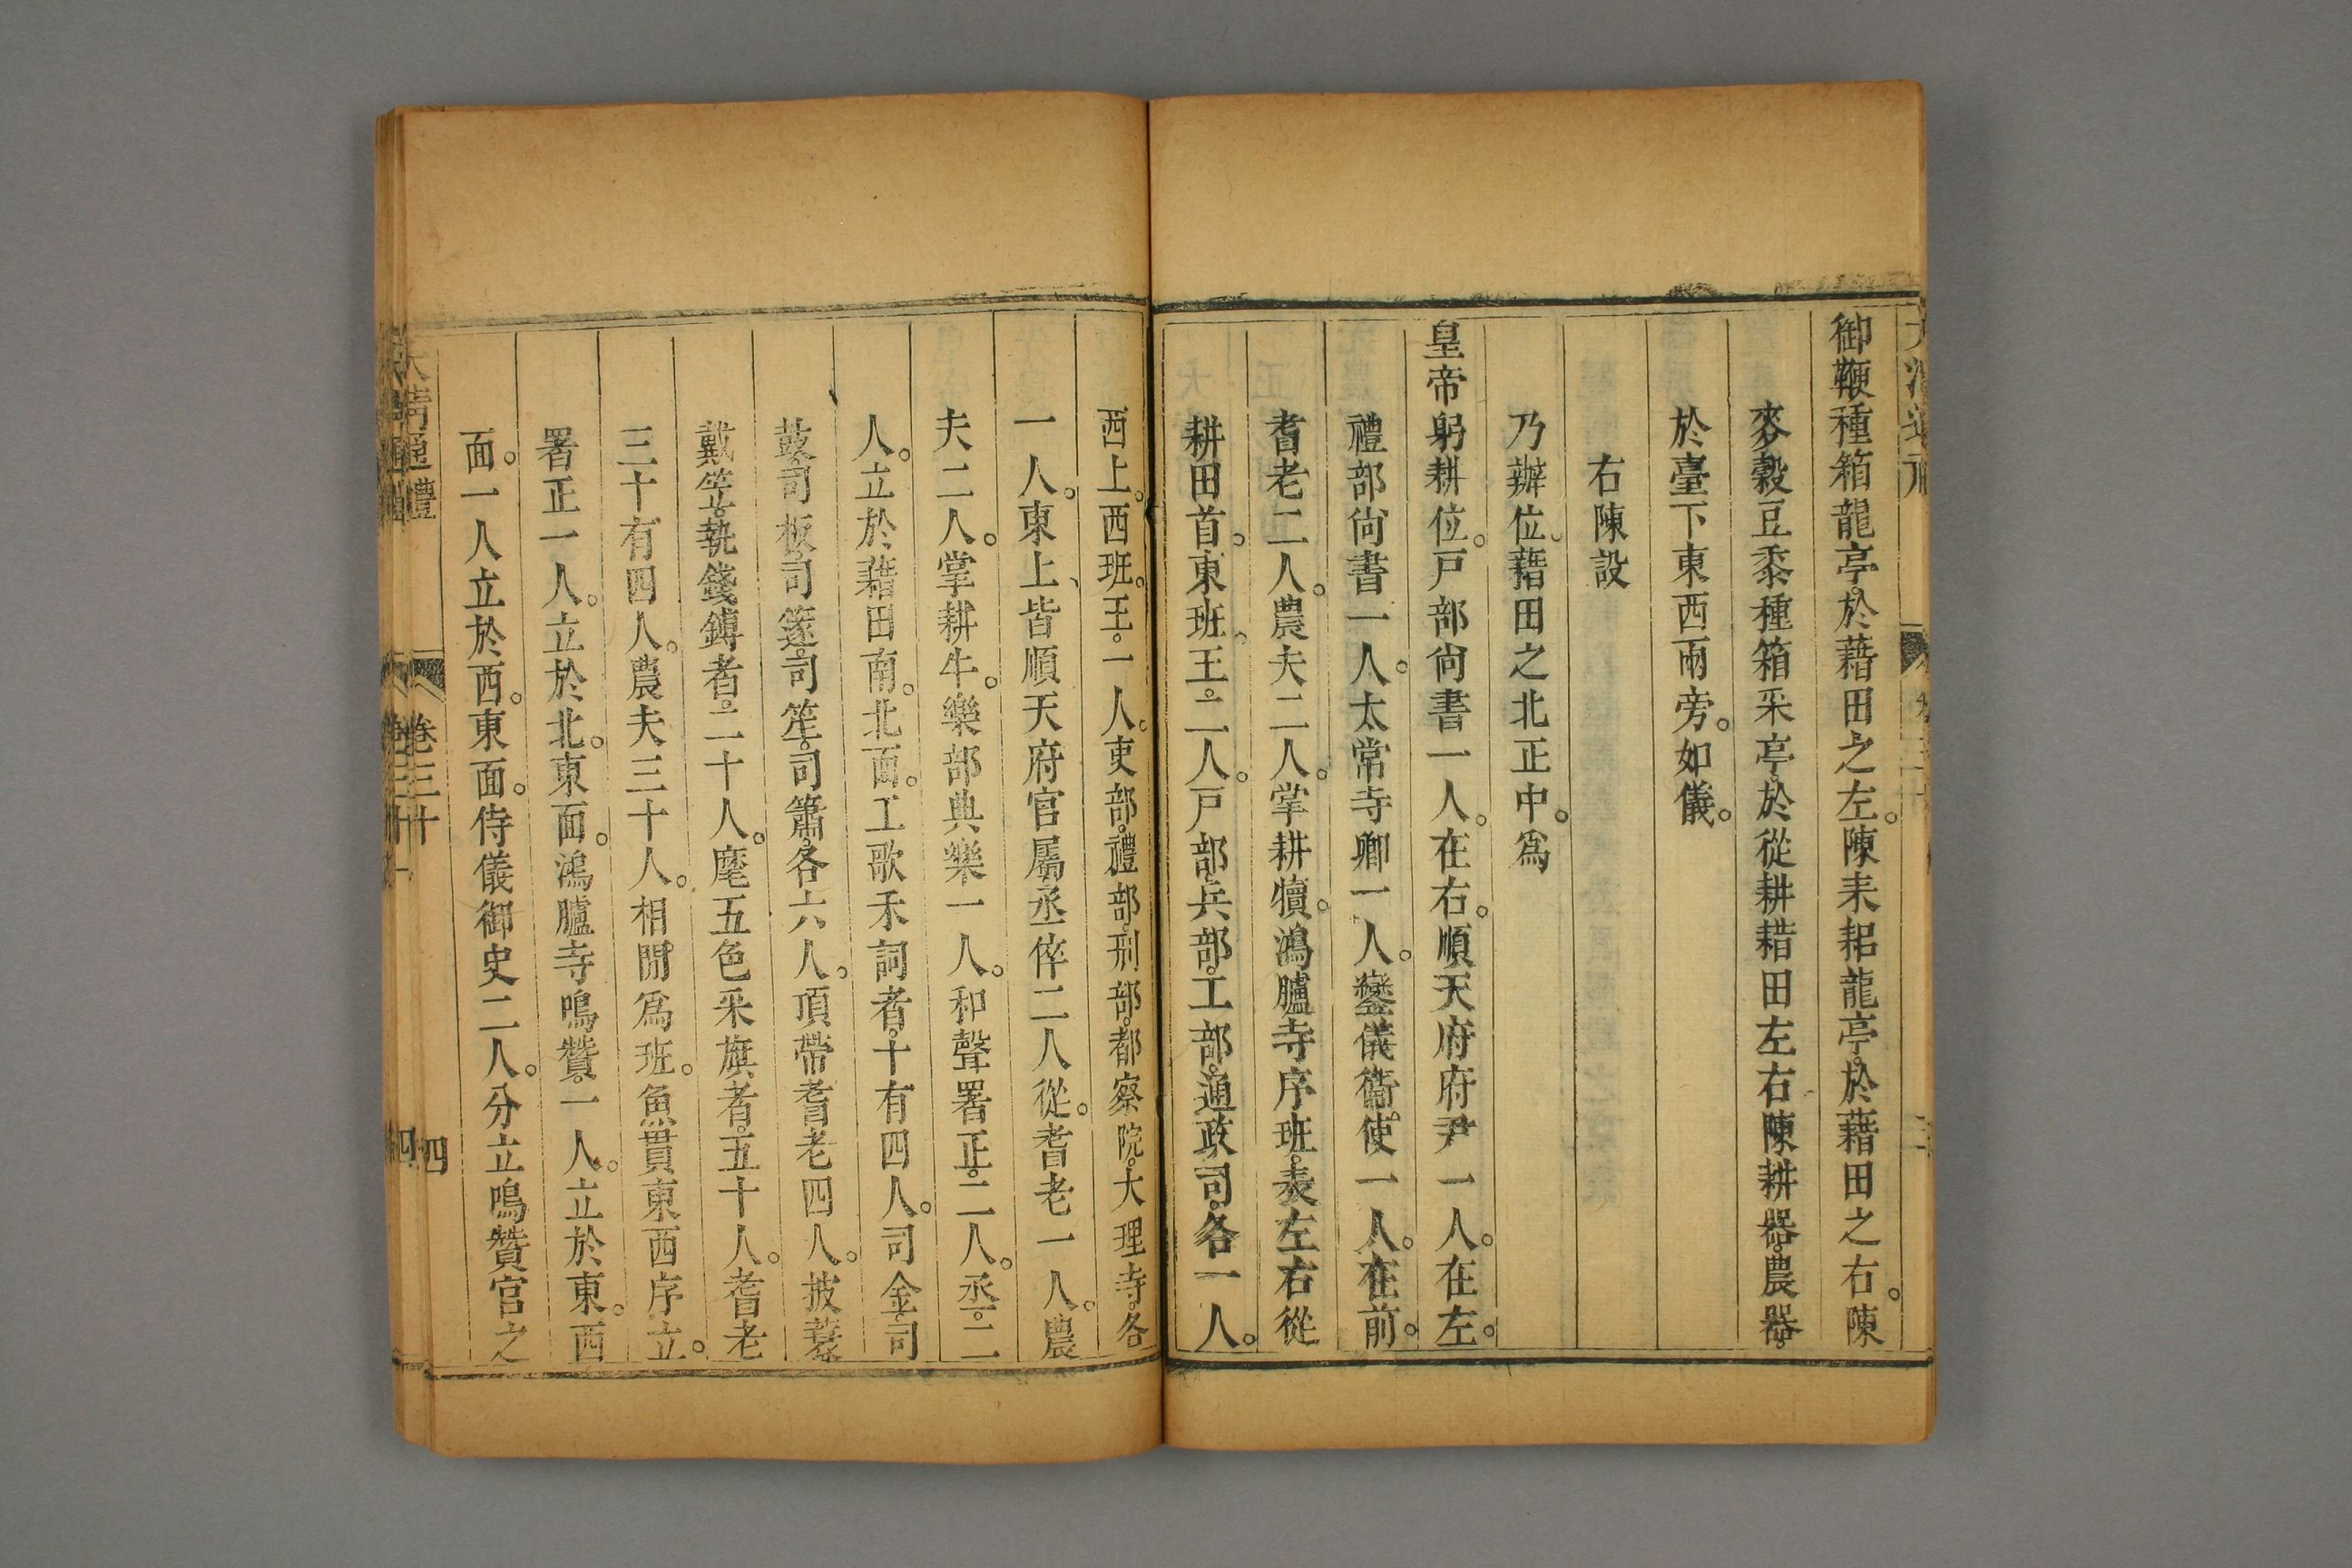 御鞭種箱龍亭於藉田之左。陳耒耜龍亭於藉田之右。陳
麥穀豆黍種箱采亭於從耕耤田左右陳耕器農器。
於臺下東西兩旁。如儀。
右陳設
乃辦位。藉田之北正中。爲
皇帝躬耕位。戸部尙書一人。在右。順天府府尹一人。在左。
禮部尙書一人。太常寺卿一人。鑾儀衞使一人。在前。
耆老二人。農夫二人。掌耕犢。鴻臚寺序班。表左右從
耕田首。東班。王。二人。戸部。兵部。工部。通政司。各一人。
西上。西班。王。一人。吏部。禮部。刑部。都察院。大理寺。各
一人。東上、皆順天府官屬丞倅二人從。耆老一人。農
夫二人。掌耕牛。樂部典樂一人。和聲署正。二人。丞。二
人。立於藉田南。北面。工歌禾詞者。十有四人。司金。司
鼓。司板。司篴。司笙。司簫。各六人。頂帶耆老四人。披蓑
戴笠。執錢鎛者。二十人。麾五色采旗者。五十人。耆老
三十有四人。農夫三十人。相閒爲班。魚貫東西序立。
署正一人。立於北。東面。鴻臚寺鳴贊。一人。立於東。西
面。一人立於西。東面。侍儀御史二人。分立鳴贊官之
大清通禮 卷三十 四